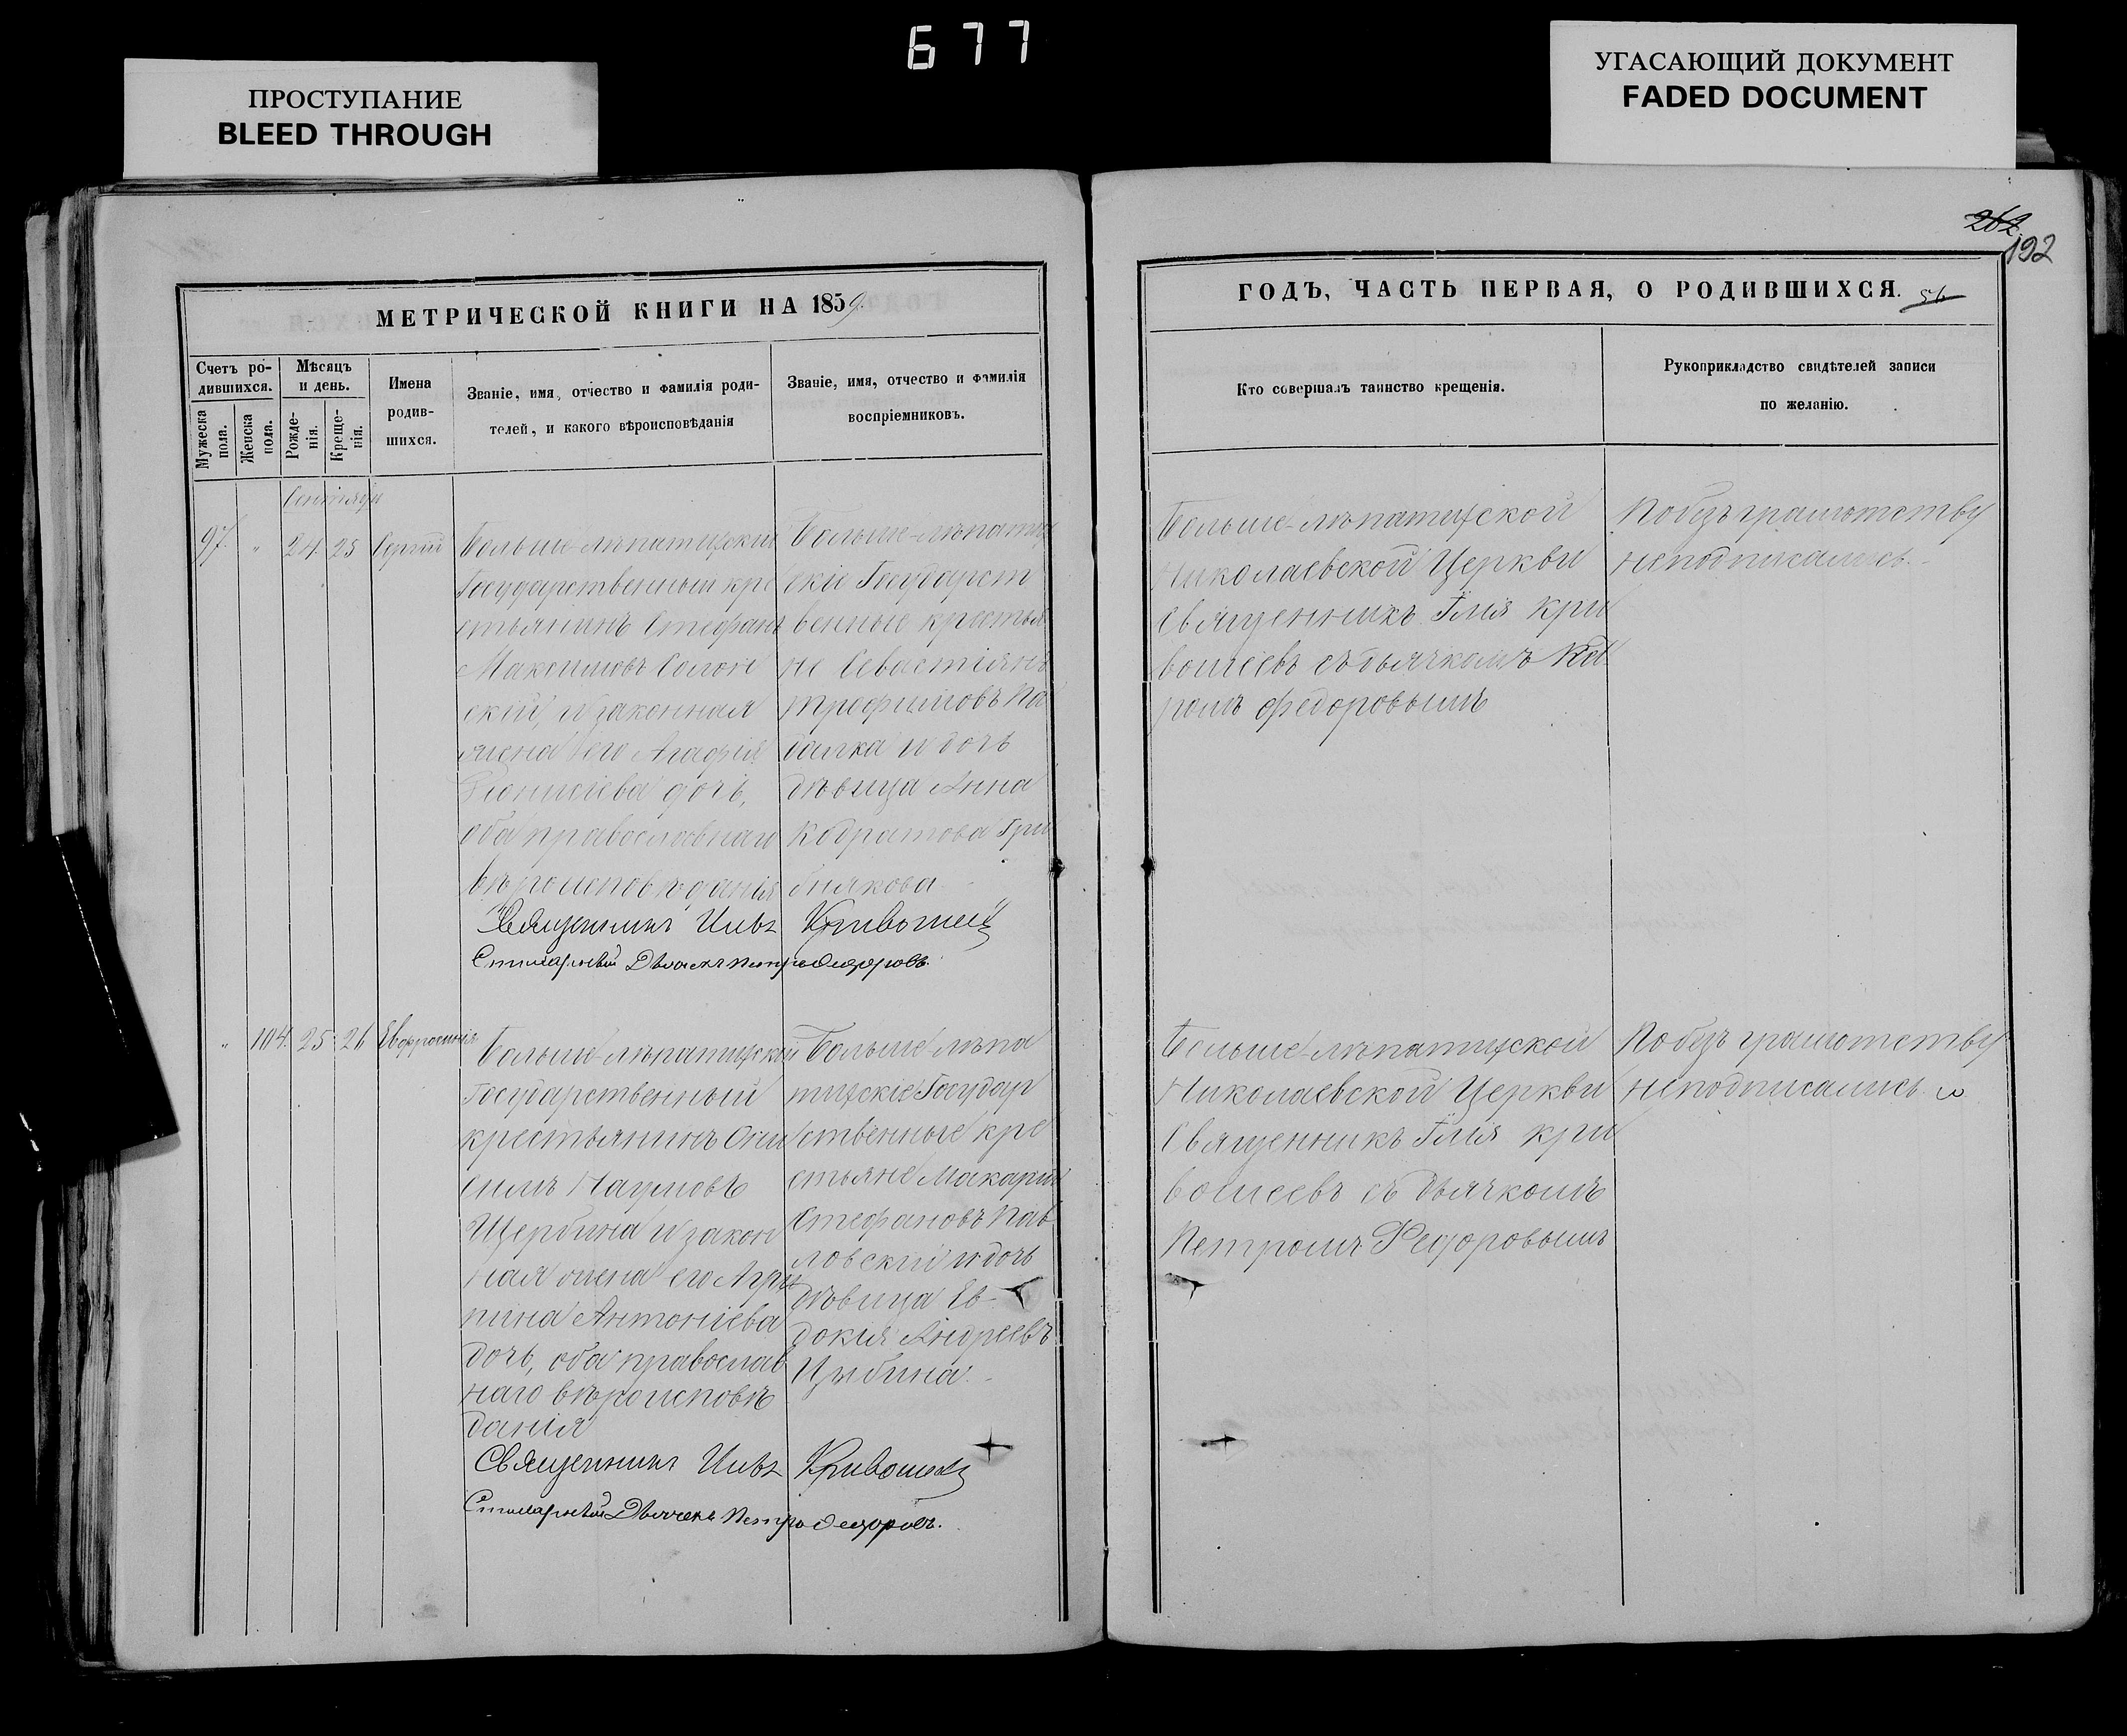 677
ПРОСТУПАНИЕ
BLEED THROUGH
УГАСАЮЩИЙ ДОКУМЕНТ
FADED DOCUMENT
262
192
МЕТРИЧЕСКОЙ КНИГИ НА 1859.
Счетъ ро-
дившихся.
Мужеска пола.
Женска пола.
Мѣсяцъ
и день.
Рожде-
нія.
Креще-
нія.
Имена
родив-
шихся.
Званіе, имя, отчество и фамилія роди-
телей, и какого вѣроисповѣданія
Званіе, имя, отчество и фамилія
воспріемниковъ.
Сентября
97. " 24. 25 Сергій
Больше-лѣпатихскій
Государственный кре
стьянинъ Стефанъ
Максимовъ Солон
скій, и законная
жена его Агафія
Діонисіева дочь,
оба православнаго
вѣроисповѣданія
Больше-лѣпатих
скіе Государст
венные крестья
не Севастіянъ
Трофимовъ Па
далка и дочь
дѣвица Анна
Кодратова Гри
бнякова
Священникъ Илія Кривошеевъ
Стихарный Дьячекъ Петръ Федоровъ.
" 104. 25 26 Евфросинія
Больше-лѣпатихскій
Государственный
крестьянинъ Они
симъ Наумовъ
Щербина и закон
ная жена его Агри
пина Антоніева
дочь, оба православ
наго вѣроисповѣ
данія
Больше лѣпа
тихскіе Государ
ственные кре
стьяне Макарій
Стефановъ Пав
ловскій и дочь
дѣвица Ев-
докія Андреевъ
Цыбина.
Священникъ Илія Кривошеевъ
Стихарный Дьячекъ Петръ Федоровъ.
ГОДЪ, ЧАСТЬ ПЕРВАЯ, О РОДИВШИХСЯ.
Кто совершалъ таинство крещенія.
Рукоприкладство свидѣтелей записи
по желанію.
Больше-лѣпатихской
Николаевской Церкви
Священникъ Илія Кри
вошеевъ съ дьячкомъ Пет
ромъ Федоровымъ
По безъ грамотству
неподписались.
Больше-лѣпатихской
Николаевской Церкви
Священникъ Илія Кри
вошеевъ съ дьячкомъ
Петромъ Федоровымъ
По безъ грамотству
неподписались